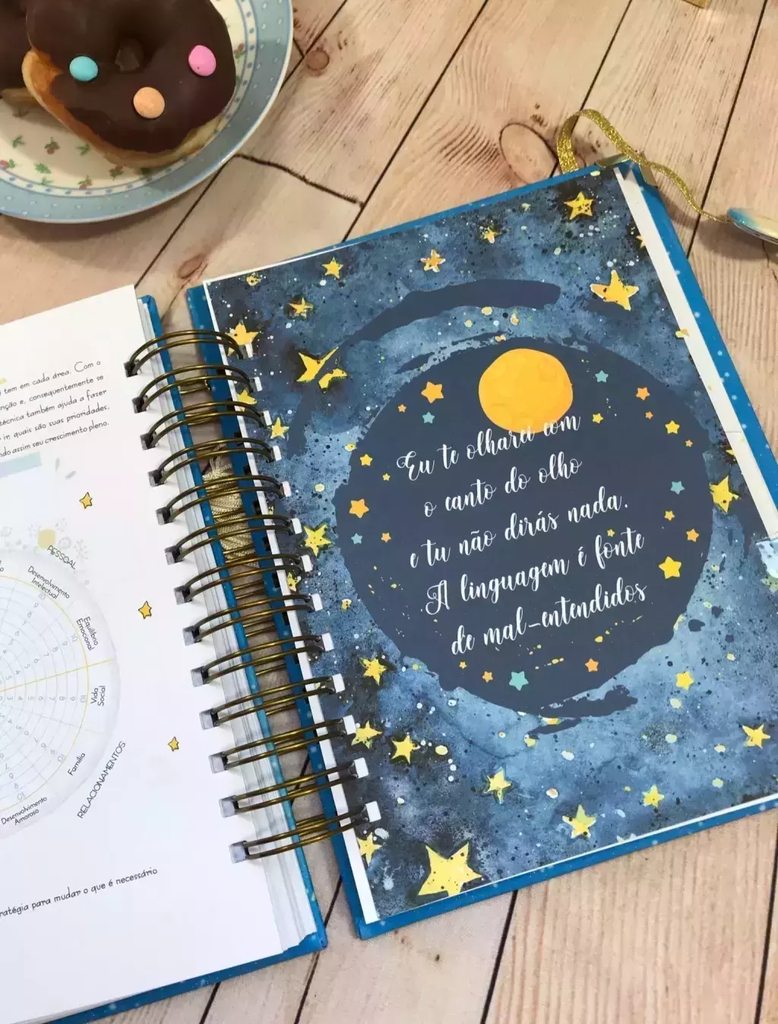 tem em cada área. Com a
e, consequentemente se
técnica também ajuda a fazer
quais são suas prioridades,
assim seu crescimento pleno.
PESSOAL
Desenvolvimento
Intelectual
Equilíbrio
Emocional
Vida
Social
Família
RELACIONAMENTOS
Desenvolvimento
Amoroso
para mudar o que é necessário
Eu te olharei com
o canto do olho
e tu não dirás nada.
A linguagem é fonte
de mal-entendidos